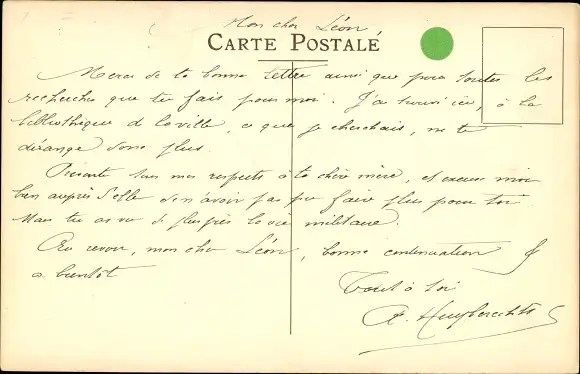 Mon cher Léon
CARTE POSTALE
Merci de ta bonne lettre ainsi que pour toutes les
recherches que tu fais pour moi. J'ai trouvé ici, à la
bibliothèque de la ville, ce que je cherchais, ne te
dérange donc plus.
Présente tous mes respects à ta chère mère, et excuse moi
bien auprès d'elle de n'avoir pas pu faire plus pour toi
Mais tu as vu de plus près la vie militaire.
Au revoir, mon cher Léon, bonne continuation &
a bientôt
Tout à toi
A. Huybrechts